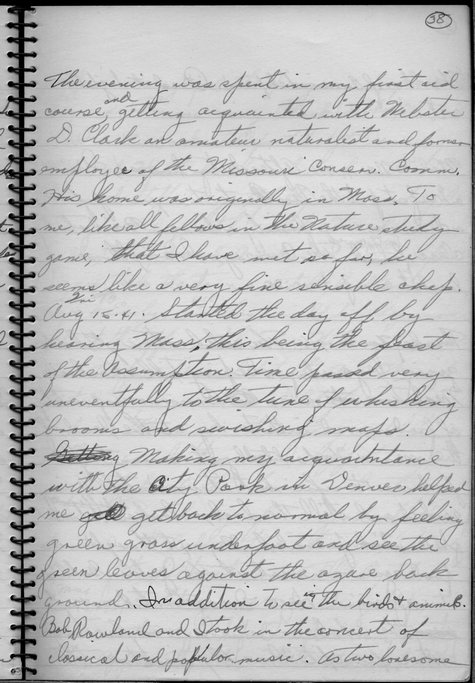 38
The evening was spent in my first aid
course, and getting acquainted with Webster
D. Clark an amateur naturalist and former
employee of the Missouri Conserv. Comm.
His home was originally in Mass. To
me, like all fellows in the Nature study
game, that I have met so far, he
seems like a very fine sensible chap.
Fri
Aug 15-41. Started the day off by
hearing Mass, this being the feast
of the Assumption. Time passed very
uneventfully to the tune of whisking
brooms and swishing mops.
Getting Making my acquaintance
with the City Park in Denver helped
me get back to normal by feeling
green grass underfoot and see the
green leaves against the azure back
ground. In addition to seeing the birds & animals.
Bob Rowland and I took in the concert of
classical and popular music. As two lonesome